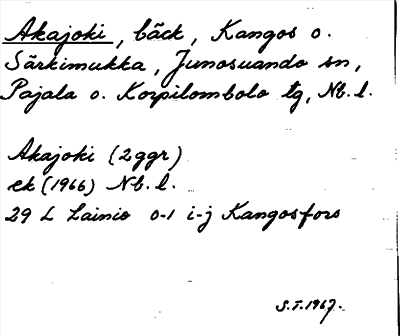 Akajoki, bäck, Kangos o.
Särkimukka, Junosuando sn,
Pajala o. Korpilombolo tg, Nb. l.
Akajoki (2ggr)
ek (1966) Nb. l.
29 L Lainio 0-1 i-j Kangosfors
S.T. 1967.